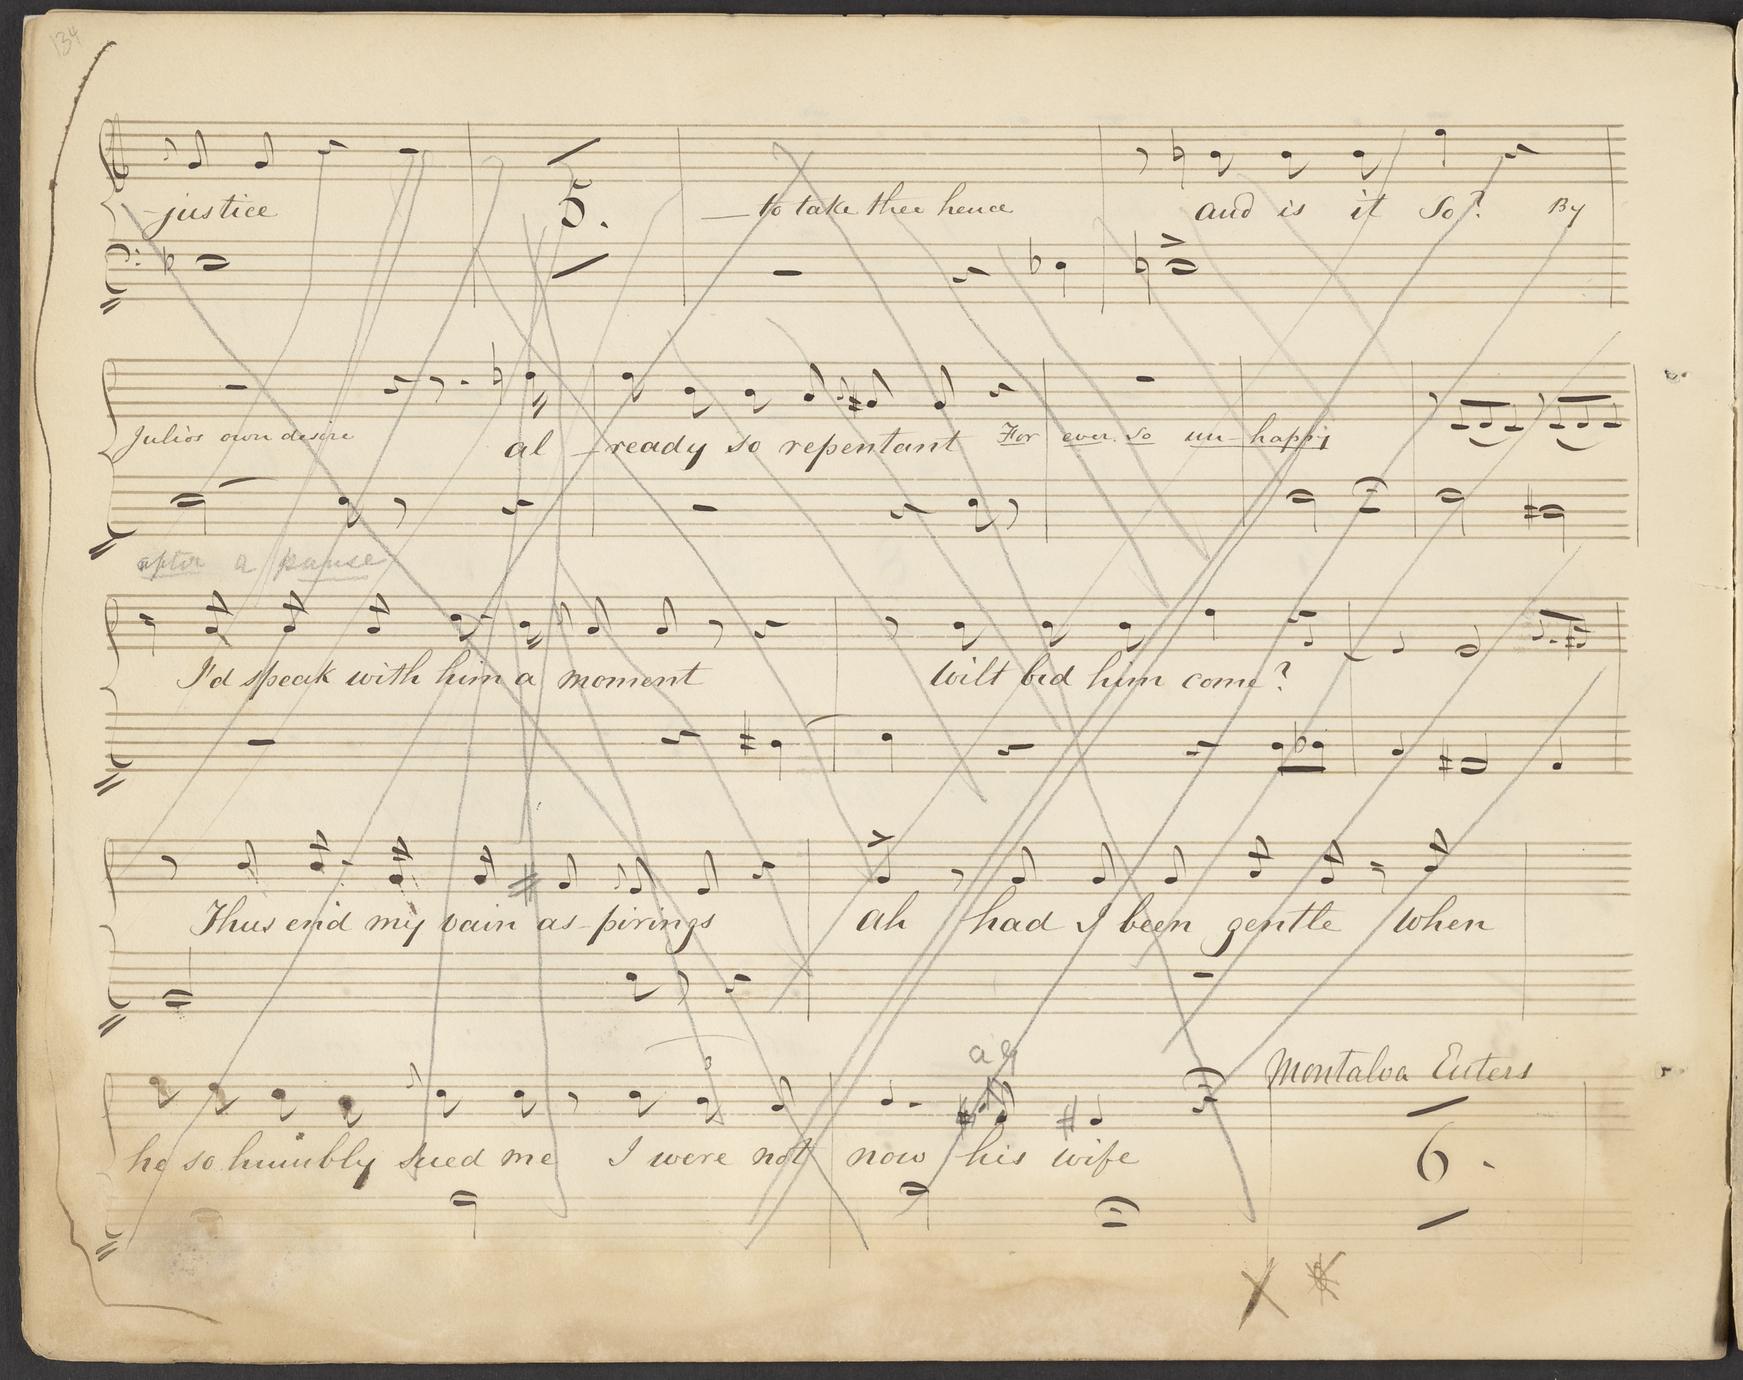 134
justice 5. to take thee hence and is it So? By
Julios own desire al - ready so repentant For ever so un - happy
after a pause
I'd speak with him a moment Wilt bid him come?
Thus end my vain as - pirings ah had I been gentle when
3
a g
Montalva Enters
he so humbly sued me I were not now his wife 6.